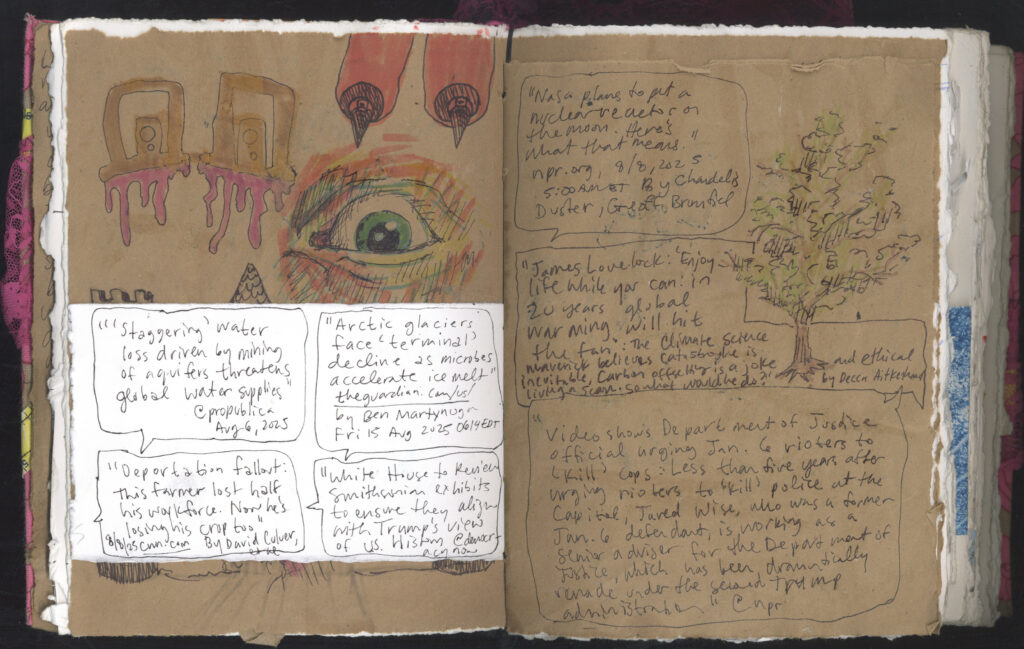 "'Staggering' water
loss driven by mining
of aquifers threatens
global water supplies"
@propublica
Aug 6, 2025
"Arctic glaciers
face 'terminal'
decline as microbes
accelerate ice melt"
theguardian.com/us/
by Ben Martynoga
Fri 15 Aug 2025 0614 EDT
"Deportation fallout:
this farmer lost half
his workforce. Now he's
losing his crop too"
cnn.com By David Culver,
"White House to Review
Smithsonian exhibits
to ensure they align
with Trump's view
of US. History @democr
acy now
"Nasa plans to put a
nuclear reactor on
the moon. Here's
what that means."
npr.org, 8/8, 2025
5:00AM ET By Chandelis
Duster, Geoff Brumfiel
"James Lovelock: 'Enjoy
life while you can: in
20 years global
warming will hit
the fan.': The Climate science
maverick believes catastrophe is
inevitable, Carbon offsetting is a joke
and ethical
living a scam. So what would he do?"
by Decca Aitkenhead
"Video shows Department of Justice
official urging Jan. 6 rioters to
'Kill' cops: Less than five years after
urging rioters to 'kill' police at the
Capitol, Jared Wise, who was a former
Jan. 6 defendant, is working as a
senior adviser for the Department of
Justice, which has been dramatically
remade under the second Trump
administration" @npr